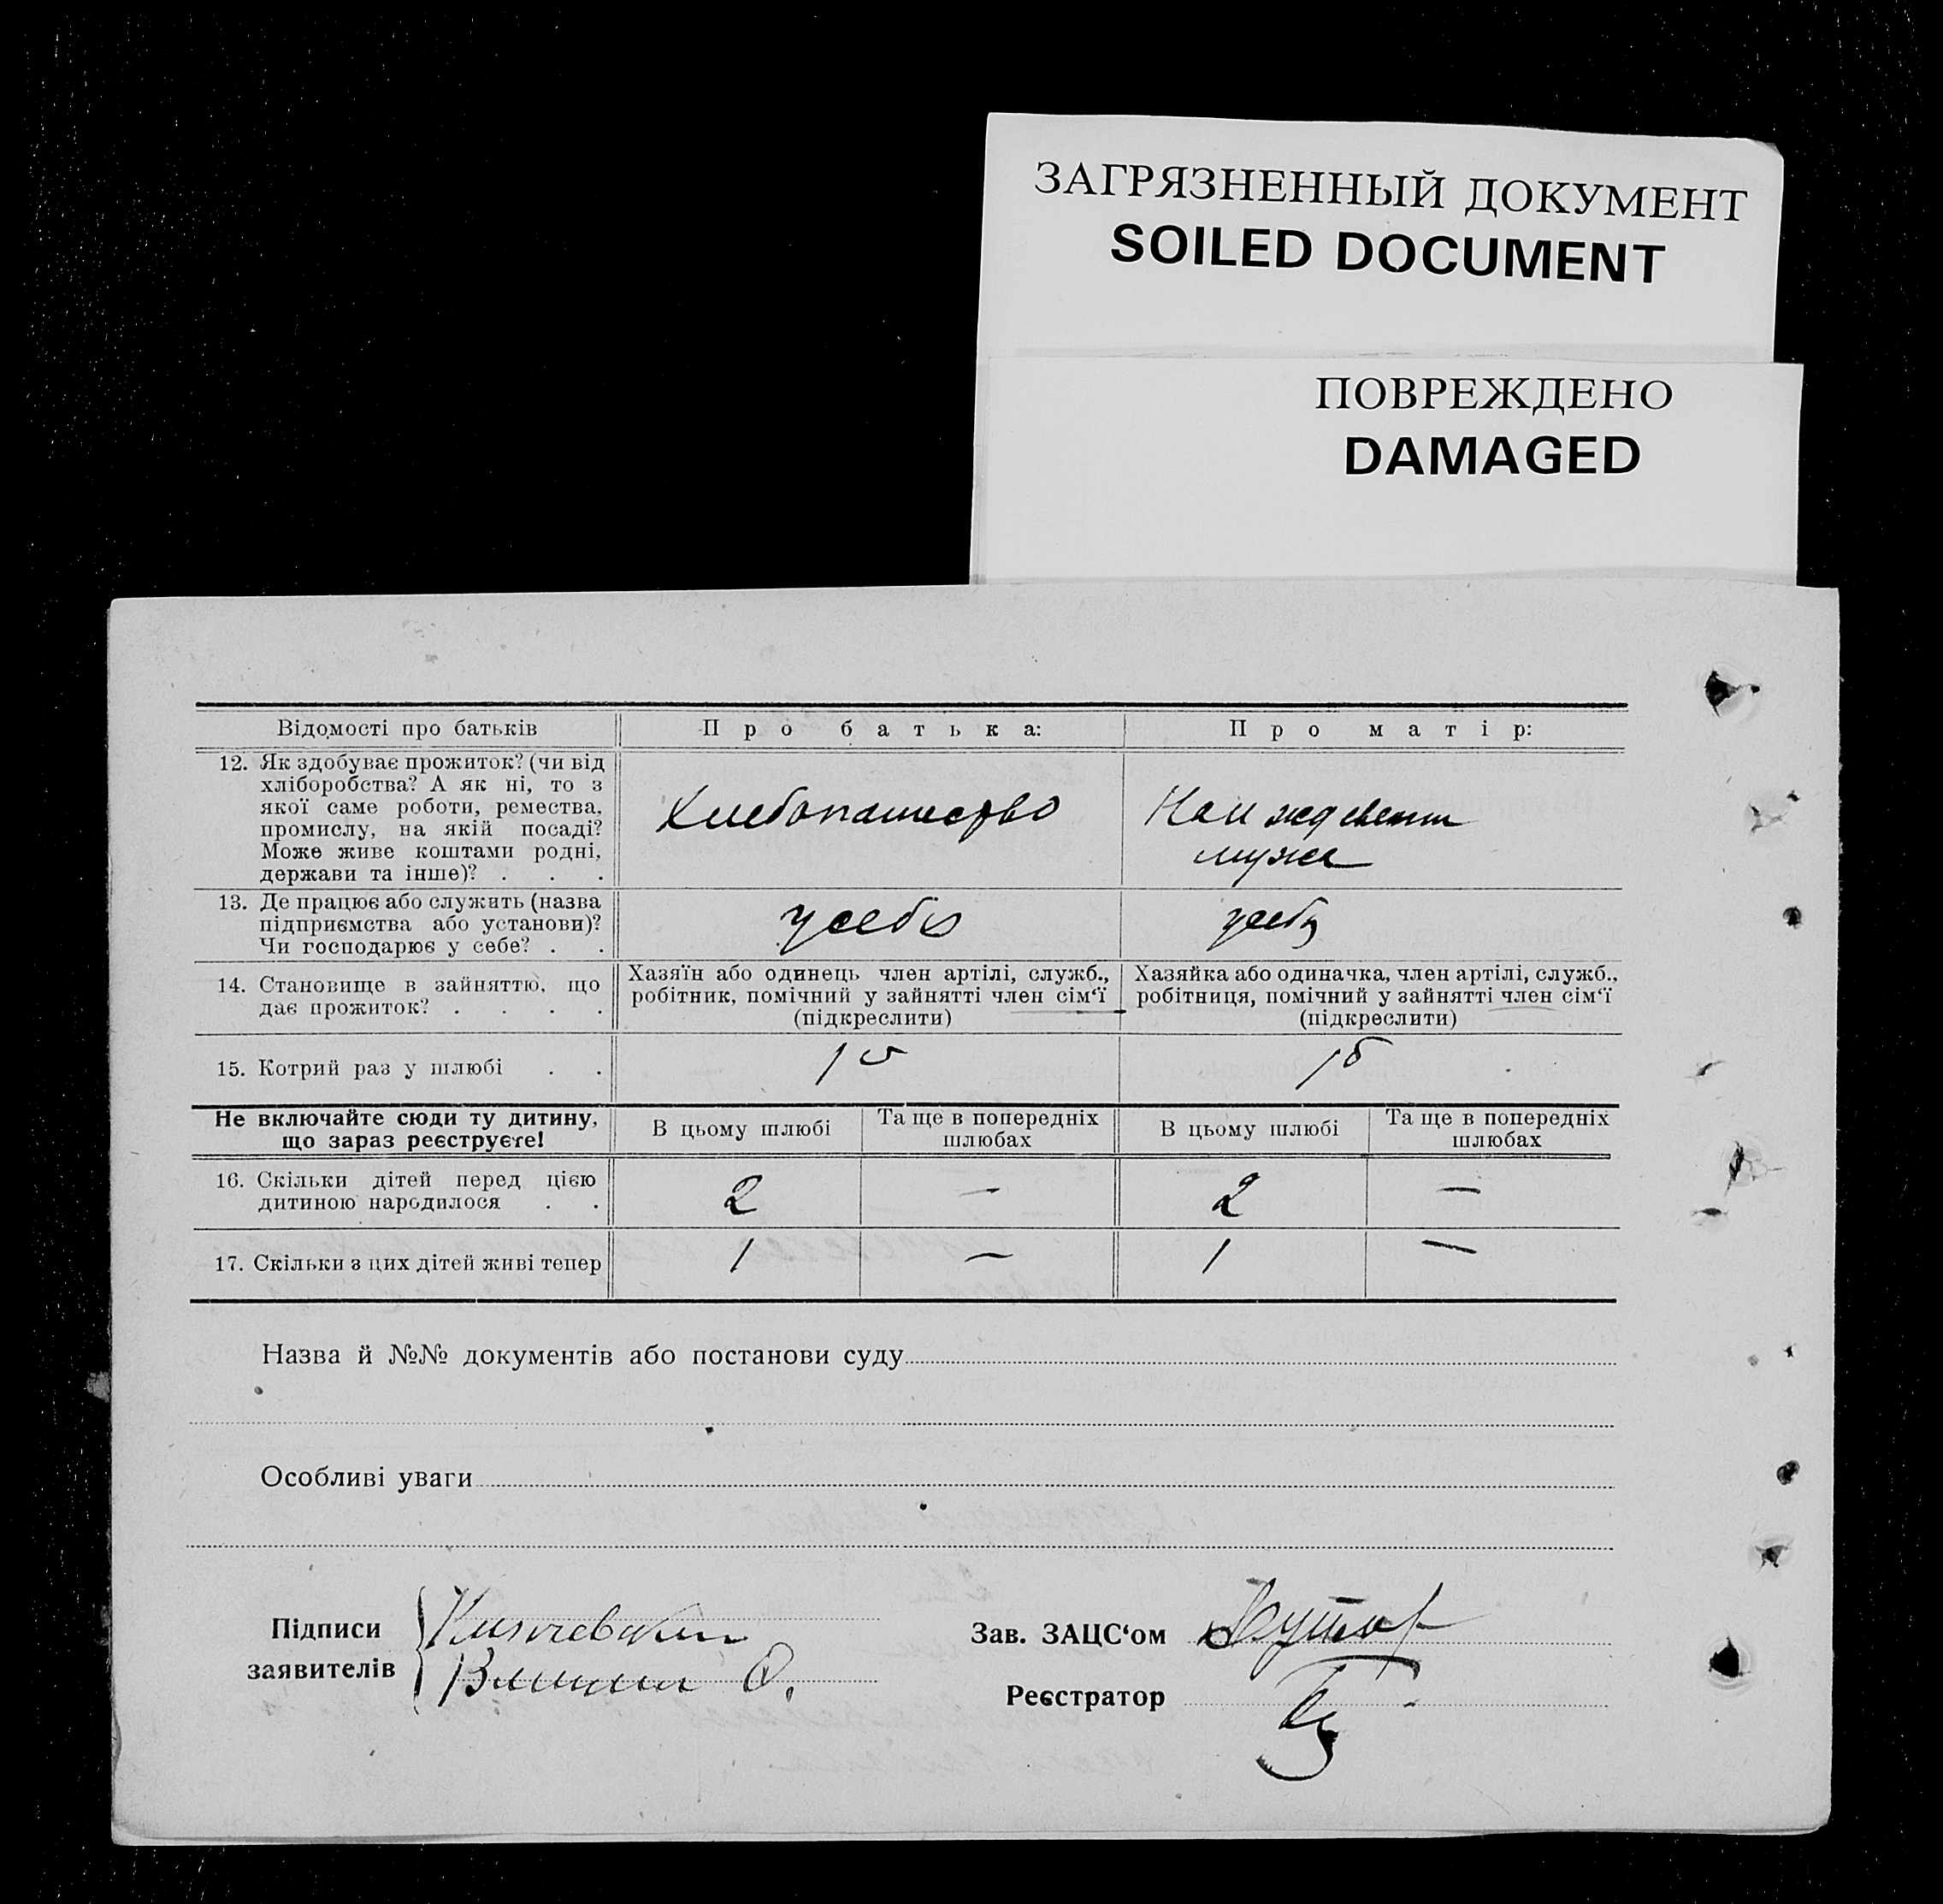 ЗАГРЯЗНЕННЫЙ ДОКУМЕНТ
SOILED DOCUMENT
ПОВРЕЖДЕНО
DAMAGED
Відомості про батьків
Про батька:
Про матір:
12. Як здобуває прожиток? (чи від
хліборобства? А як ні, то з
якої саме роботи, ремества,
промислу, на якій посаді?
Може живе коштами родні,
держави та інше)? . . .
Хлебопашество
На иждевении
мужа
13. Де працює або служить (назва
підприємства або установи)?
Чи господарює у себе? . .
у себя
у себя
14. Становище в зайняттю, що
дає прожиток? . . . .
Хазяїн або одинець член артілі, служб.,
робітник, помічний у зайнятті член сім‘ї
(підкреслити)
Хазяйка або одиначка, член артілі, служб.,
робітниця, помічний у зайнятті член сім‘ї
(підкреслити)
15. Котрий раз у шлюбі . .
1
1
Не включайте сюди ту дитину,
що зараз реєструєте!
В цьому шлюбі
Та ще в попередніх
шлюбах
В цьому шлюбі
Та ще в попередніх
шлюбах
16. Скільки дітей перед цією
дитиною народилося . .
2
—
2
—
17. Скільки з цих дітей живі тепер
1
—
1
—
Назва й №№ документів або постанови суду
Особливі уваги
Підписи
заявителів
Зав. ЗАЦС‘ом
Реєстратор